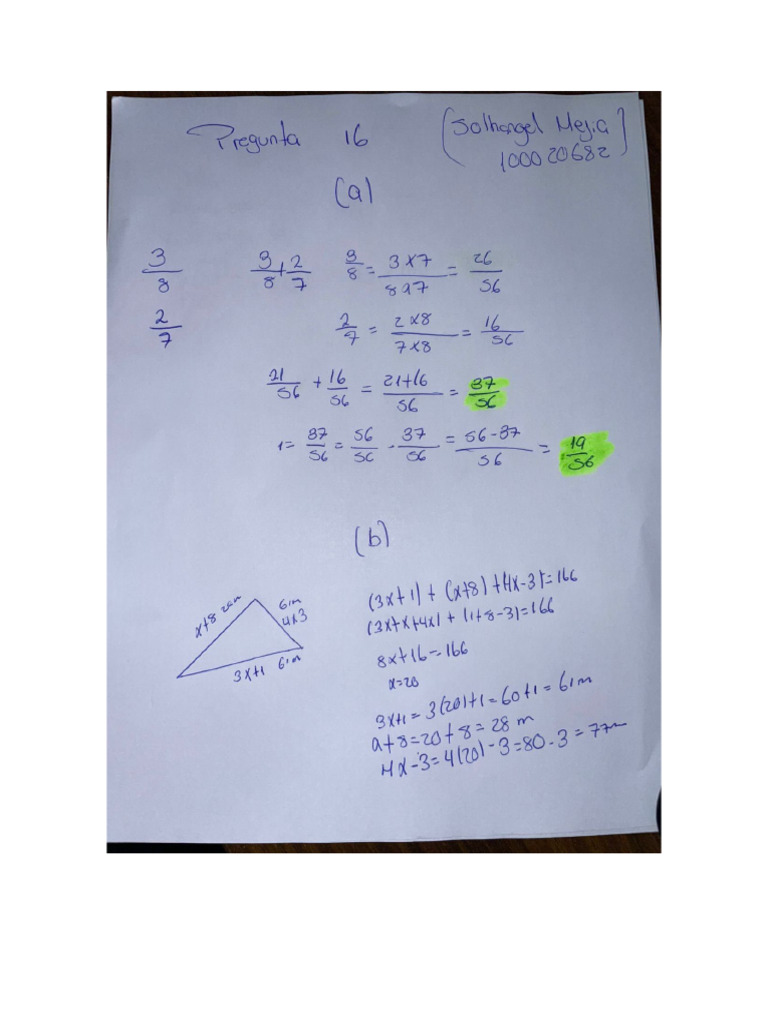 Pregunta 16
(Solhangel Mejia
100020682)
(a)
3/8
3/8 + 2/7
3/8 = 3x7/8x7 = 26/56
2/7
2/7 = 2x8/7x8 = 16/56
21/56 + 16/56 = 21+16/56 = 37/56
1 = 37/56 = 56/56 - 37/56 = 56-37/56 = 19/56
(b)
x+8 28m
61m
4x3
3x+1 61m
(3x+1) + (x+8) + (4x-3) = 166
(3x+x+4x) + (1+8-3) = 166
8x+16=166
x=20
3x+1 = 3(20)+1 = 60+1 = 61m
x+8 = 20+8 = 28 m
4x-3 = 4(20)-3 = 80-3 = 77m